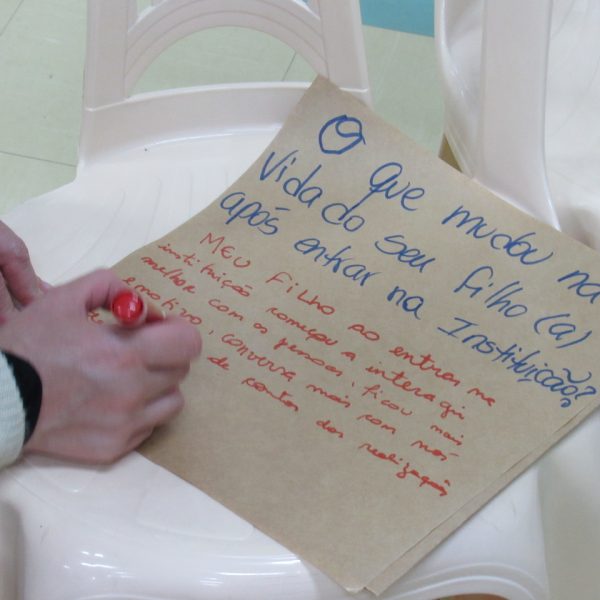 O que mudou na
vida do seu filho(a)
após entrar na Instituição?
MEU FILHO AO entrar na
instituição começou a interagi
melhor com as pessoas, ficou mais
emotivo, conversa mais com nós
de contos das realizações